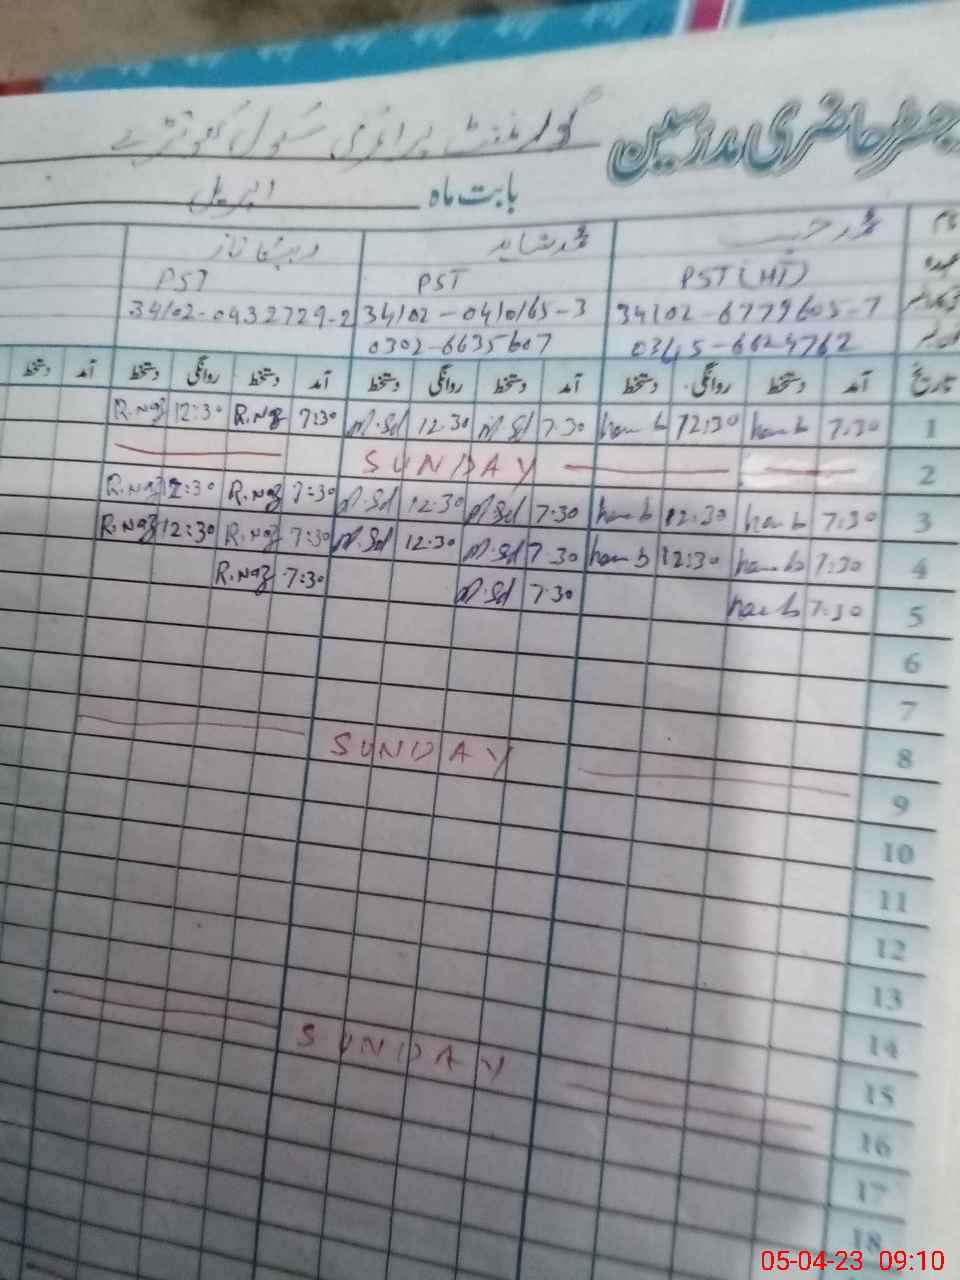 رجسٹر حاضری مدرسین گورنمنٹ پرائمری سکول
بابت ماہ اپریل
نام محمد شاہد
عہدہ PST (HT) PST PST
34102-6779605-7 34102-0410165-3 34102-0432729-2
0345-6624762 0302-6635607
تاریخ آمد دستخط روانگی دستخط آمد دستخط روانگی دستخط آمد دستخط روانگی دستخط آمد دستخط
1 7:30 12:30 7.30 M.Sd 12.30 M.Sd 7:30 R.Naz 12:30 R.Naz
2 SUNDAY
3 7:30 12:30 7:30 M.Sd 12:30 M.Sd 7:30 R.Naz 12:30 R.Naz
4 7:30 12:30 7:30 M.Sd 12:30 M.Sd 7:30 R.Naz 12:30 R.Naz
5 7:30 7:30 M.Sd 7:30 R.Naz
6
7
8 SUNDAY
9
10
11
12
13
14 SUNDAY
15
16
17
18
05-04-23 09:10